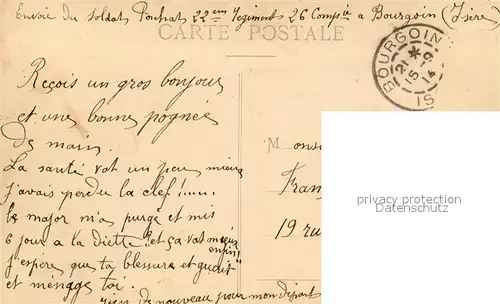 Envoie du soldat Pochat 22em Regiment 26 Compie a Bourgoin (Isère)
CARTE POSTALE
BOURGOIN
* 21
15 -9
14
IS
Reçois un gros bonjour
et une bonne pognée
de main.
La santé vat un peu mieux
j'avais perdu la clef!....
le major m'a purgé et mis
6 jour a la diette et ça vat mieux
enfin!
J'espère que ta blessure et guait
et ménage toi.
rien de nouveau pour mon départ
Monsi
Fran
19 ru
privacy protection
Datenschutz